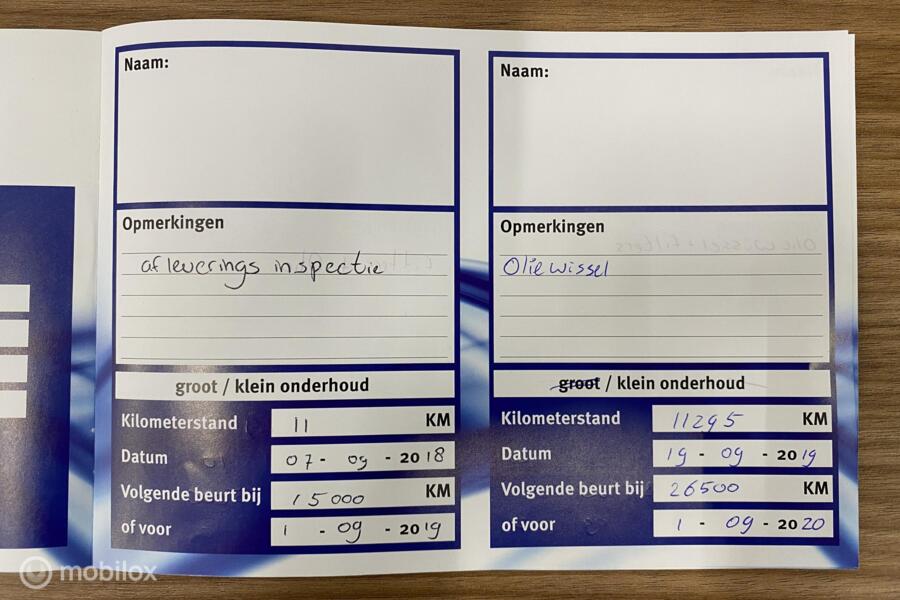 Naam:
Opmerkingen
afleverings inspectie
groot / klein onderhoud
Kilometerstand 11 KM
Datum 07 - 09 - 2018
Volgende beurt bij 15000 KM
of voor 1 - 09 - 2019
Naam:
Opmerkingen
Olie wissel
groot / klein onderhoud
Kilometerstand 11295 KM
Datum 19 - 09 - 2019
Volgende beurt bij 26500 KM
of voor 1 - 09 - 2020
mobilox